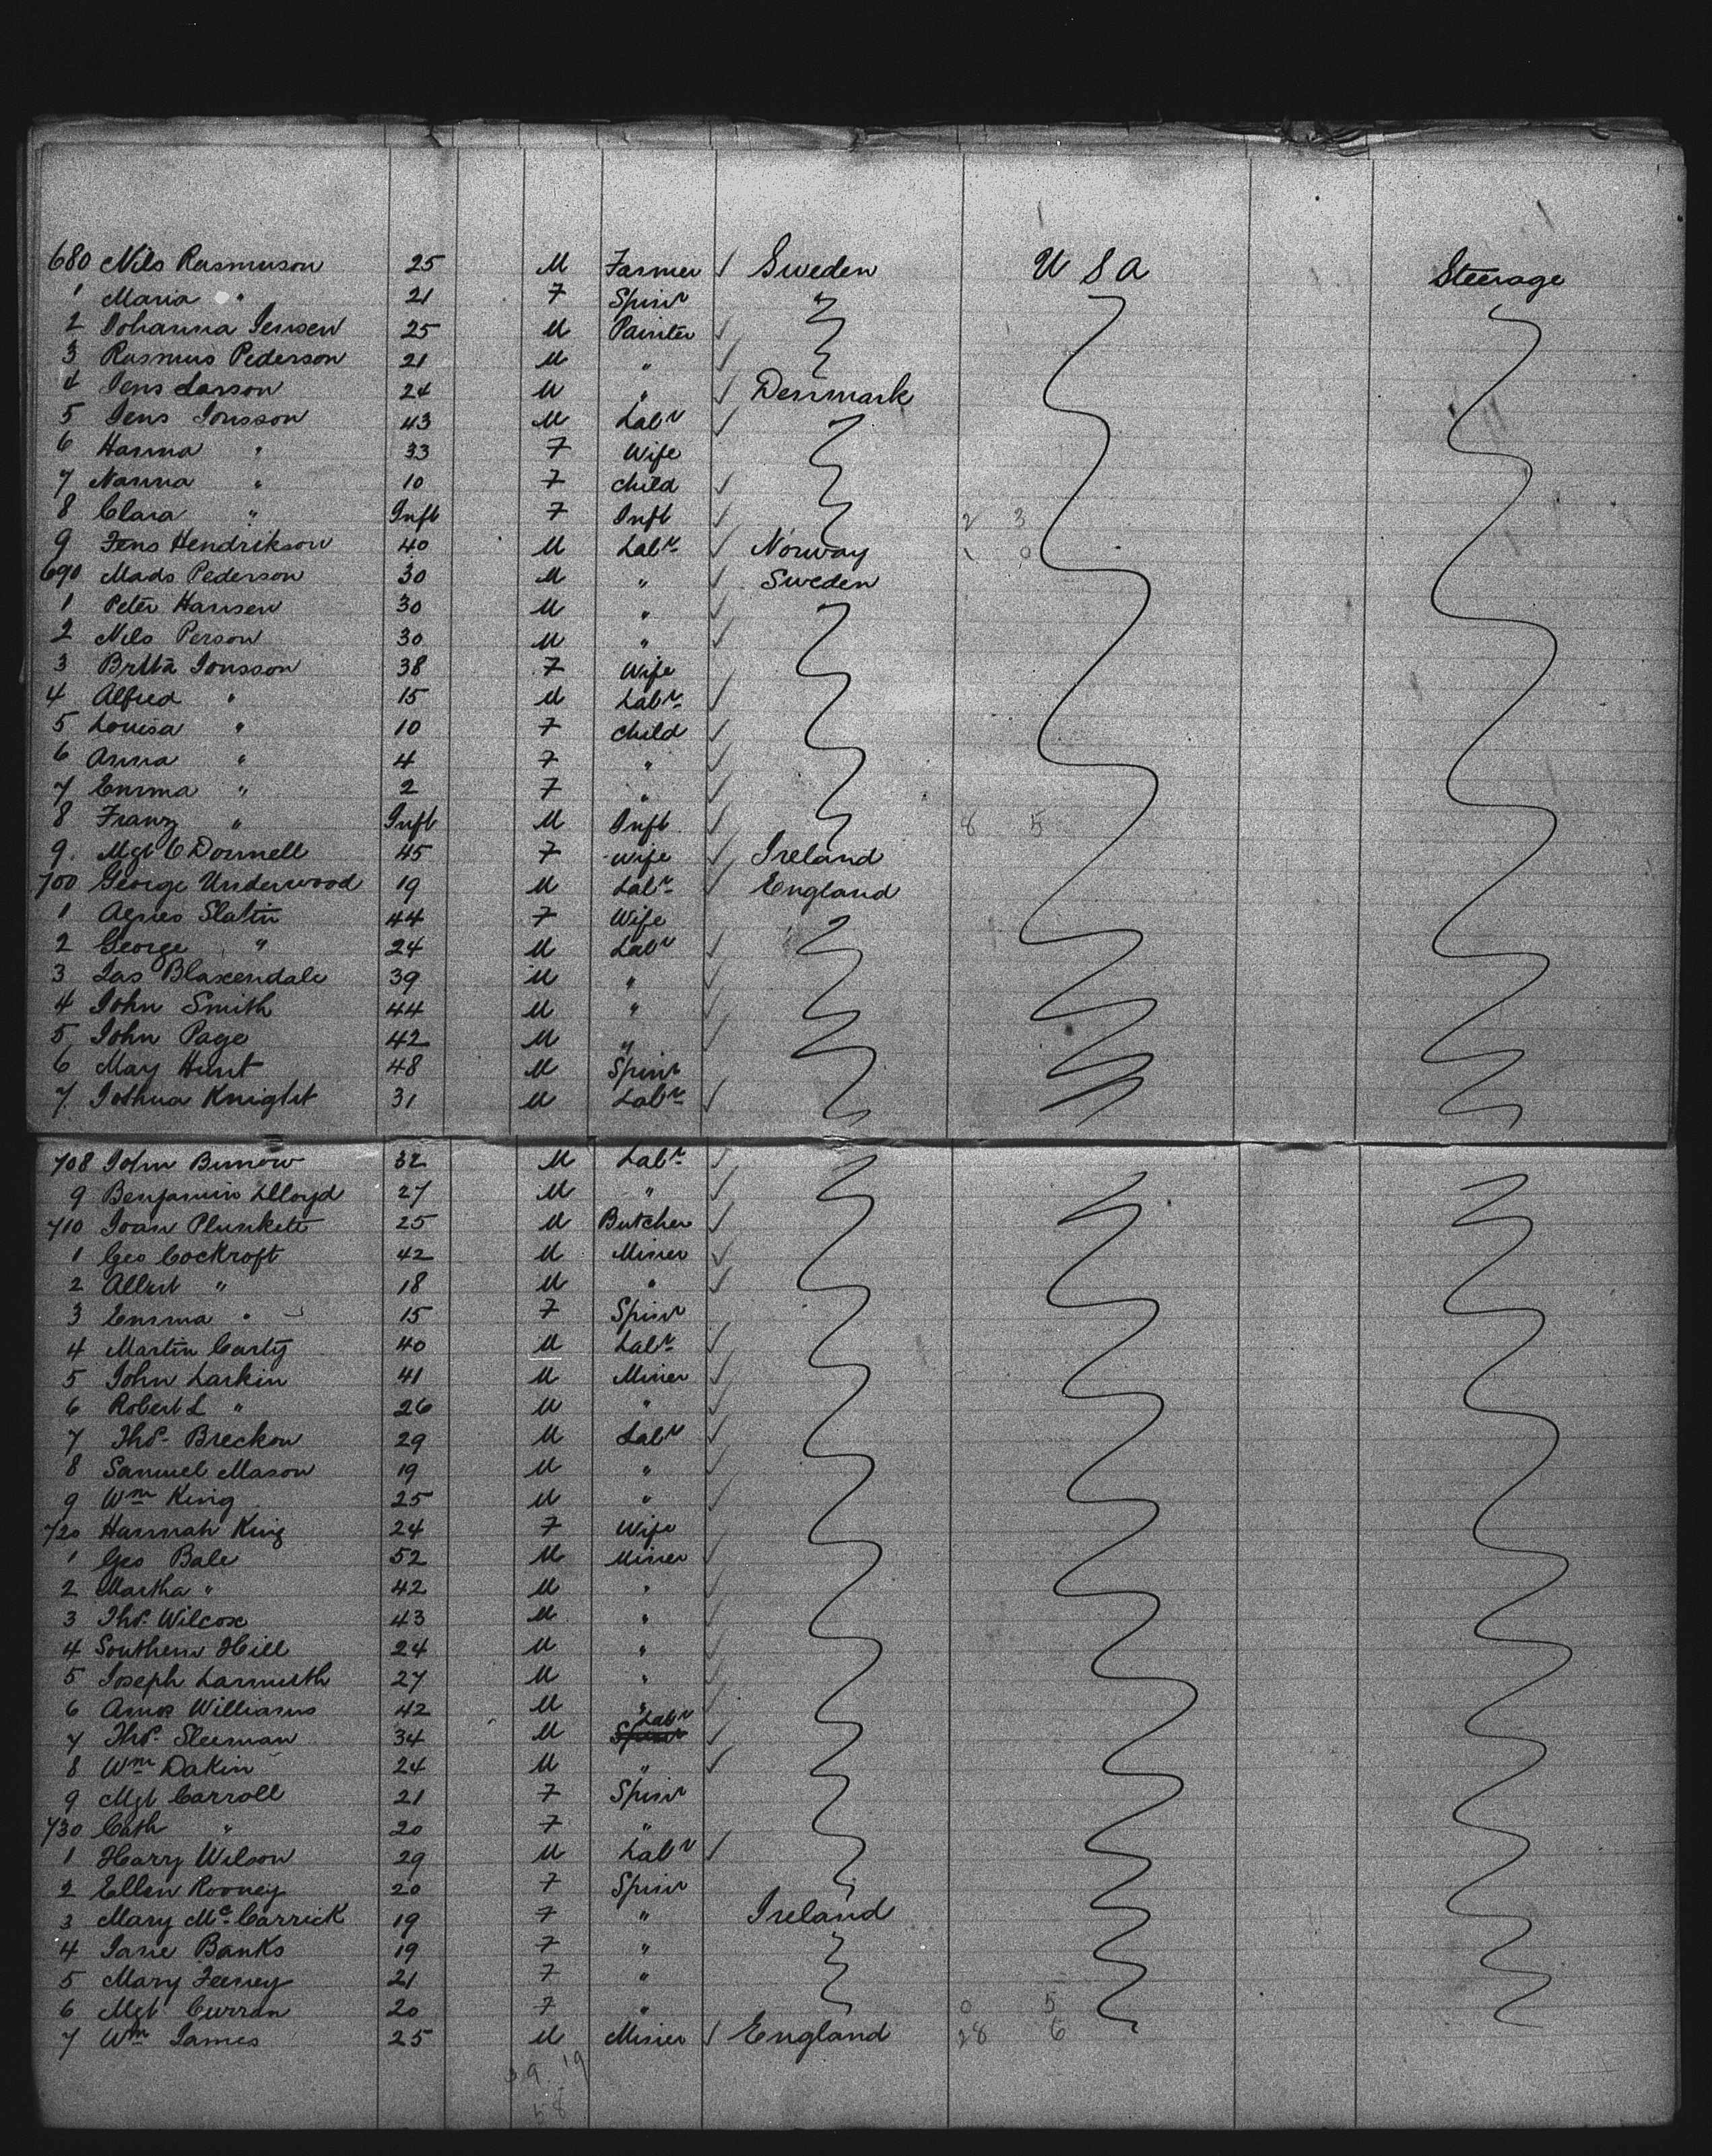 680 Nils Rasmuson 25 M Farmer ✓ Sweden U S A Steerage
1 Maria " 21 F Spinr "
2 Johanna Jensen 25 M Painter ✓
3 Rasmus Pederson 21 M " ✓
4 Jens Larson 24 M " ✓ Denmark
5 Jens Jonsson 43 M Labr ✓
6 Hanna " 33 F Wife
7 Nanna " 10 F Child ✓
8 Clara " Inft F Inft ✓ 2 3
9 Jens Hendrikson 40 M Labr ✓ Norway 1 0
690 Mads Pederson 30 M " ✓ Sweden
1 Peter Hansen 30 M " ✓
2 Nils Person 30 M " ✓
3 Britta Jonsson 38 F Wife
4 Alfred " 15 M Labr ✓
5 Louisa " 10 F Child ✓
6 Anna " 4 F " ✓
7 Emma " 2 F " ✓
8 Franz " Inft M Inft ✓ 8 5
9. Mgt O'Donnell 45 F Wife ✓ Ireland
700 George Underwood 19 M Labr ✓ England
1 Agnes Slatin 44 F Wife
2 George " 24 M Labr ✓
3 Jas Blaxendale 39 M " ✓
4 John Smith 44 M " ✓
5 John Page 42 M " ✓
6 May Hunt 48 M Spinr
7 Joshua Knight 31 M Labr ✓
708 John 32 M Labr ✓
9 Benjamin Lloyd 27 M " ✓
710 Joan Plunkett 25 M Butcher ✓
1 Geo Cockroft 42 M Miner ✓
2 Albert " 18 M " ✓
3 Emma " 15 F Spinr
4 Martin Carty 40 M Labr ✓
5 John Larkin 41 M Miner ✓
6 Robert L " 26 M " ✓
7 Thos. Breckon 29 M Labr ✓
8 Samuel Mason 19 M " ✓
9 Wm King 25 M " ✓
720 Hannah King 24 F Wife
1 Geo Bale 52 M Miner ✓
2 Martha " 42 M " ✓
3 Thos. Wilcox 43 M " ✓
4 Southern Hill 24 M " ✓
5 Joseph Larmuth 27 M " ✓
6 Amos Williams 42 M " ✓
7 Thos. Sleeman 34 M Spinr Labr ✓
8 Wm Dakin 24 M " ✓
9 Mgt Carroll 21 F Spinr
730 Cath " 20 F "
1 Harry Wilson 29 M Labr ✓
2 Ellen Rooney 20 F Spinr
3 Mary McCarrick 19 F " Ireland
4 Jane Banks 19 F "
5 Mary Feeney 21 F "
6 Mgt Curran 20 F " 0 5
7 Wm James 25 M Miner ✓ England 28 6
39 19
58